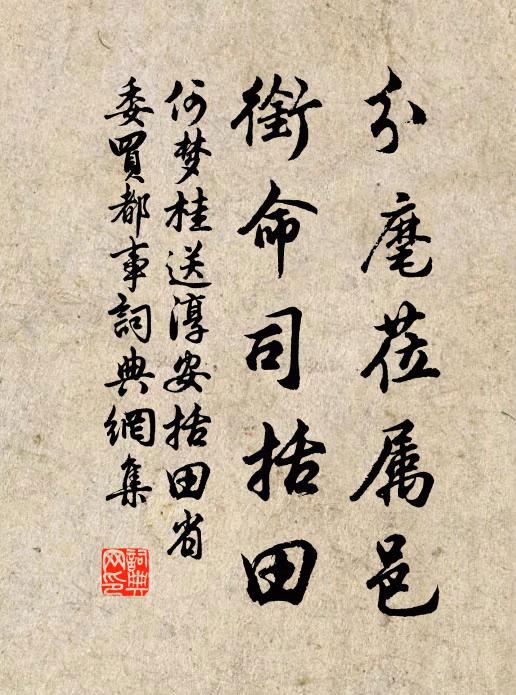 分麾莅属邑
衔命司括田
何梦桂送淳安括田省
委買都事詞典網集
詞典网印